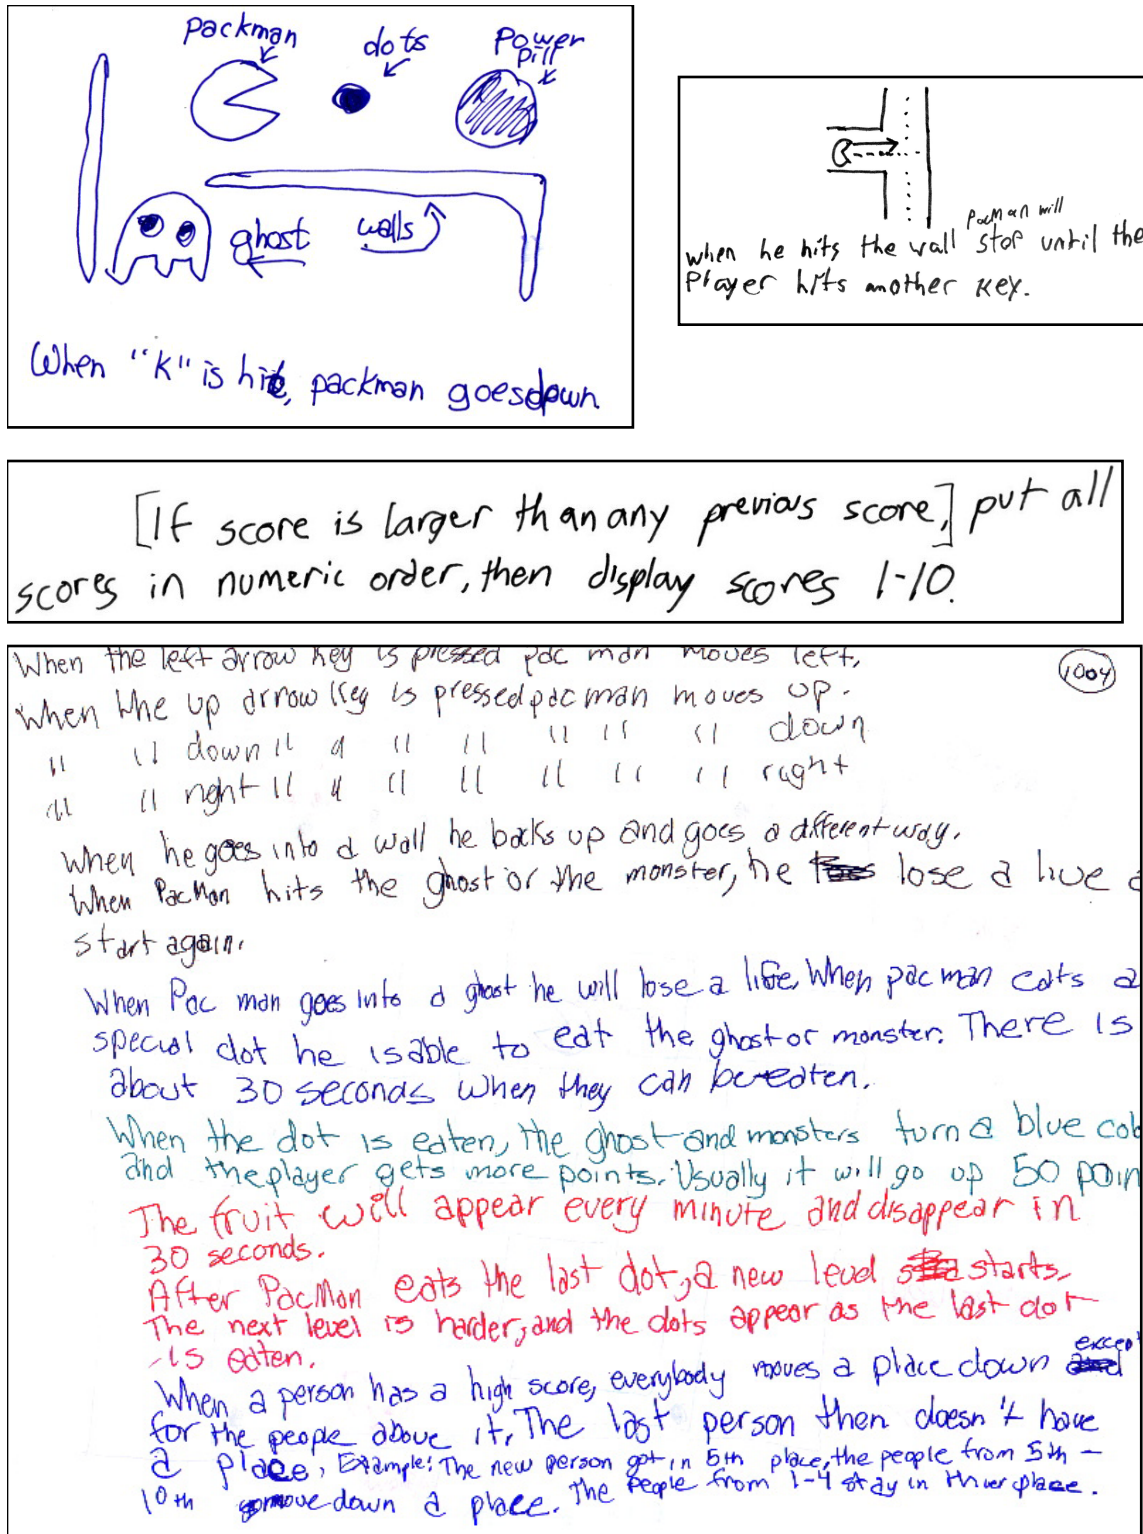 packman
dots
Power
pill
ghost
walls
When "K" is hit, packman goes down
pacman will
when he hits the wall stop until the
Player hits another key.
[If score is larger than any previous score,] put all
scores in numeric order, then display scores 1-10.
When the left arrow key is pressed pac man moves left.
1004
When the up arrow key is pressed pac man moves up.
" " down " " " " " " " down
" " right " " " " " " " right
When he goes into a wall he backs up and goes a different way.
When PacMan hits the ghost or the monster, he lose a live a
start again.
When Pac man goes into a ghost he will lose a life. When pac man eats a
special dot he is able to eat the ghost or monster. There is
about 30 seconds when they can be eaten.
When the dot is eaten, the ghost and monsters turn a blue col
and the player gets more points. Usually it will go up 50 poin
The fruit will appear every minute and disappear in
30 seconds.
After PacMan eats the last dot, a new level starts.
The next level is harder, and the dots appear as the last dot
is eaten.
When a person has a high score, everybody moves a place down except
for the people above it. The last person then doesn't have
a place. Example: The new person got in 5th place, the people from 5th -
10th move down a place. The people from 1-4 stay in thier place.